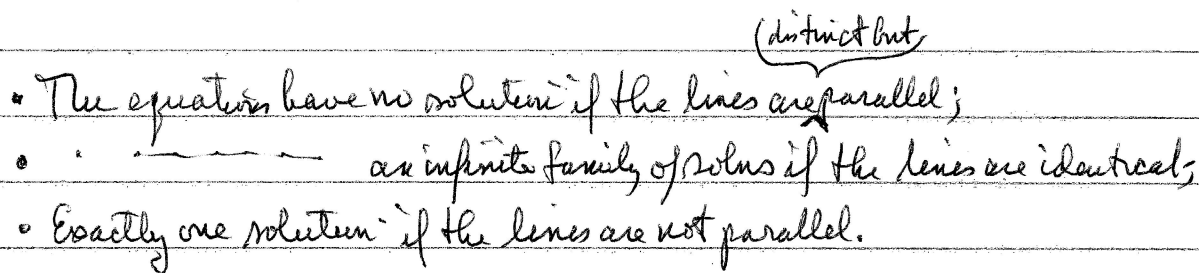 (distinct but
• The equations have no solution if the lines are parallel;
• an infinite family of solns if the lines are identical;
• Exactly one solution if the lines are not parallel.